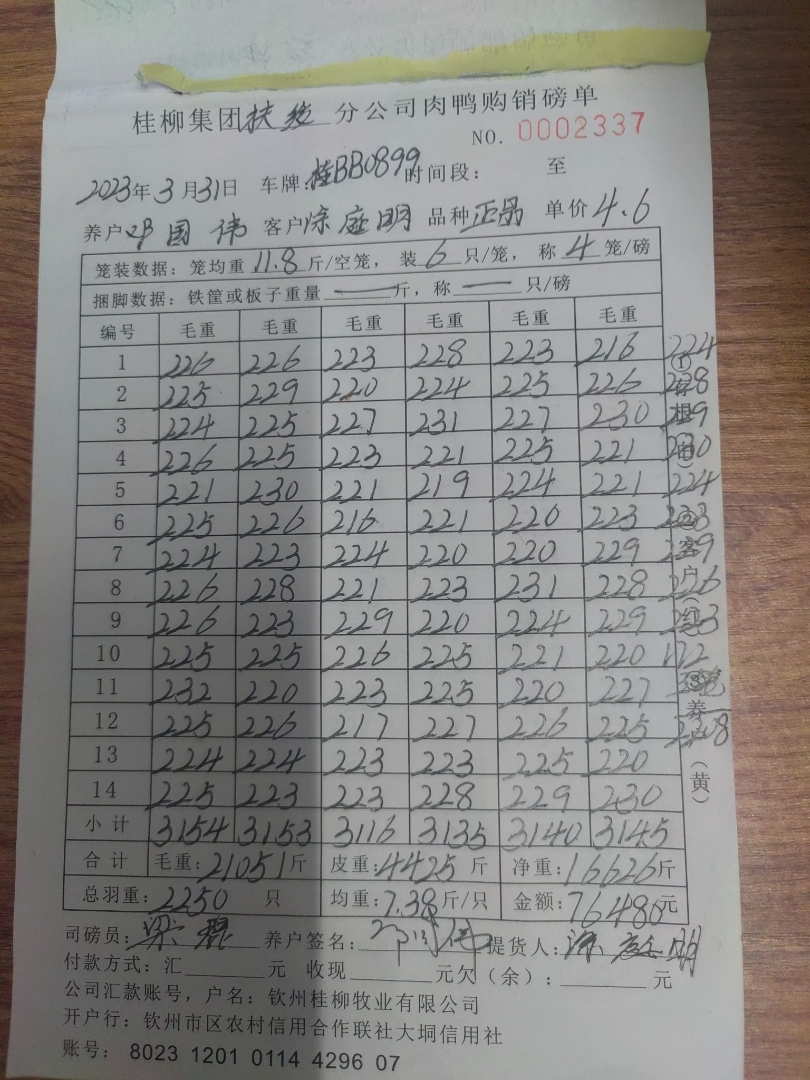 桂柳集团扶绥分公司肉鸭购销磅单
NO. 0002337
2023年3月31日 车牌:桂BB0899 时间段: 至
养户邓国伟 客户 庭明 品种 正 单价4.6
笼装数据: 笼均重11.8斤/空笼, 装6只/笼, 称4笼/磅
捆脚数据: 铁筐或板子重量—斤, 称—只/磅
编号 毛重 毛重 毛重 毛重 毛重 毛重
1 226 226 223 228 223 216 224
2 225 229 220 224 225 226 228
3 224 225 227 231 227 230 229
4 226 225 223 221 225 221 230
5 221 230 221 219 224 221 224
6 225 226 216 221 220 223 223
7 224 223 224 220 220 229 229
8 226 228 221 223 231 228 226
9 226 223 229 220 224 229 223
10 225 225 226 225 221 220 172
11 232 220 223 225 220 227
12 225 226 217 227 226 225 2208
13 224 224 223 223 225 220
14 225 223 223 228 229 230
小计 3154 3153 3116 3135 3140 3145
合计 毛重:21051斤 皮重:4425斤 净重:16626斤
总羽重:2250只 均重:7.38斤/只 金额:76480元
①存根(白) ②客户(红) ③养户(黄)
司磅员: 梁 养户签名:邓国伟 提货人: 庭明
付款方式: 汇 元 收现 元欠(余): 元
公司汇款账号, 户名: 钦州桂柳牧业有限公司
开户行: 钦州市区农村信用合作联社大垌信用社
账号: 8023 1201 0114 4296 07